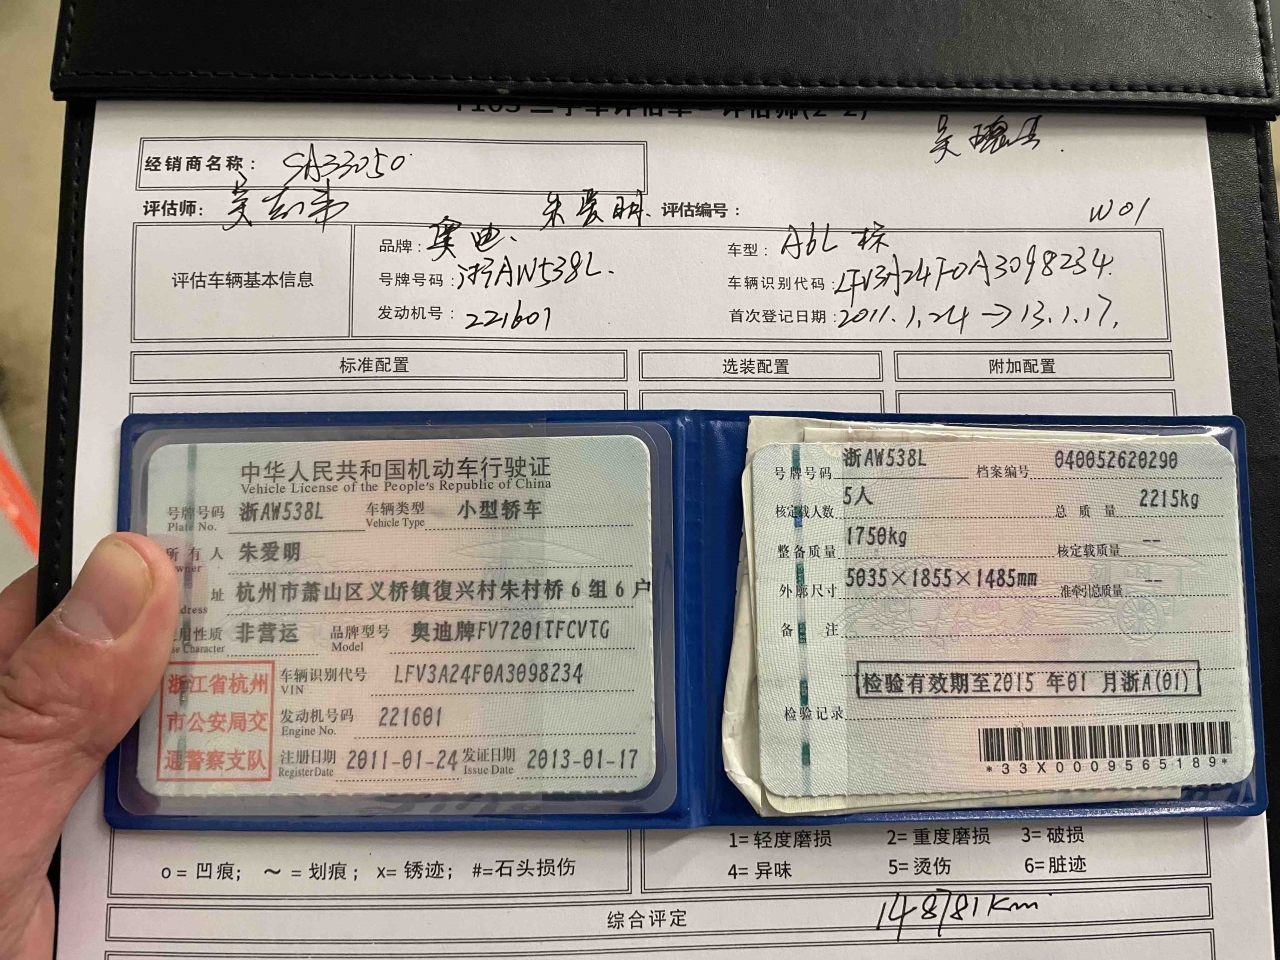 F103 二手车评估单 - 评估师(2-2)
经销商名称： SA33050
评估师： 朱爱明、 评估编号： W01
评估车辆基本信息
品牌： 奥迪、 车型： A6L 标
号牌号码： 浙AW538L. 车辆识别代码： LFV3A24F0A3098234.
发动机号： 221601 首次登记日期： 2011.1.24 → 13.1.17.
标准配置 选装配置 附加配置
中华人民共和国机动车行驶证
Vehicle License of the People's Republic of China
号牌号码 浙AW538L 车辆类型 小型轿车
Plate No. Vehicle Type
所有人 朱爱明
Owner
址 杭州市萧山区义桥镇復兴村朱村桥6组6户
Address
使用性质 非营运 品牌型号 奥迪牌FV7201TFCVTG
Use Character Model
浙江省杭州市公安局交通警察支队
车辆识别代号 LFV3A24F0A3098234
VIN
发动机号码 221601
Engine No.
注册日期 2011-01-24 发证日期 2013-01-17
Register Date Issue Date
号牌号码 浙AW538L 档案编号 040052620290
核定载人数 5人 总质量 2215kg
整备质量 1750kg 核定载质量 --
外廓尺寸 5035×1855×1485mm 准牵引总质量 --
备注
检验有效期至2015年01月浙A(01)
检验记录
*33X0009565189*
o = 凹痕； ～ = 划痕； x= 锈迹； #=石头损伤
1= 轻度磨损 2= 重度磨损 3= 破损
4= 异味 5= 烫伤 6= 脏迹
综合评定 148781Km